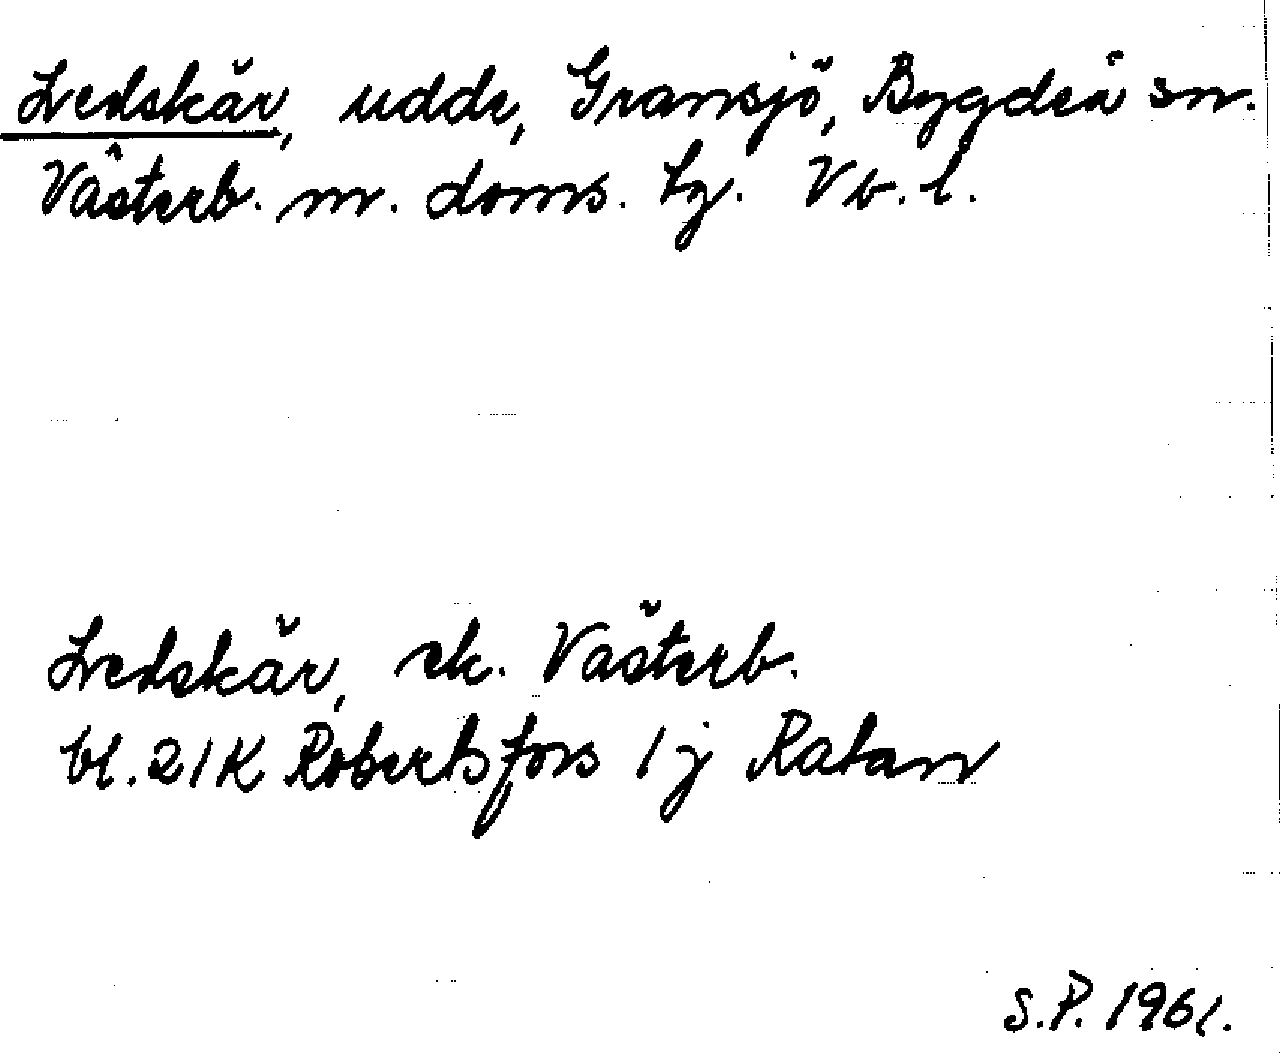 Ledskär, udde, Gransjö, Bygdeå sn.
Västerb. m. doms. tg. Vb. l.
Ledskär, ek. Västerb.
bl. 21K Robertsfors 1j Ratan
S.P. 1961.